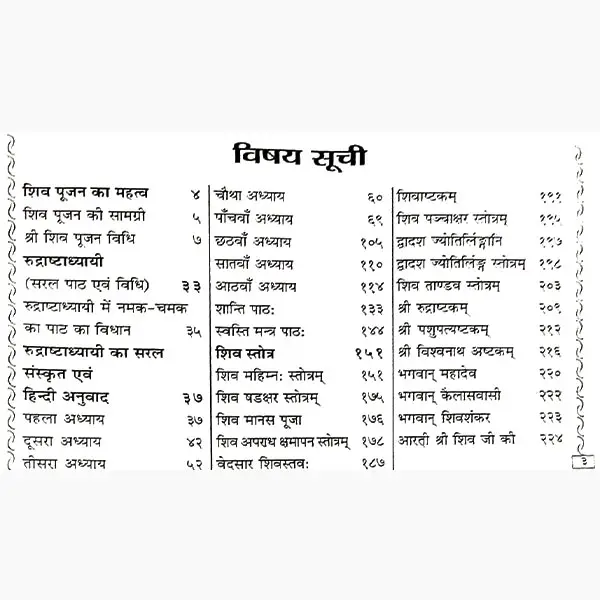 विषय सूची
शिव पूजन का महत्व ४
शिव पूजन की सामग्री ५
श्री शिव पूजन विधि ७
रुद्राष्टाध्यायी
(सरल पाठ एवं विधि) ३३
रुद्राष्टाध्यायी में नमक-चमक
का पाठ का विधान ३५
रुद्राष्टाध्यायी का सरल
संस्कृत एवं
हिन्दी अनुवाद ३७
पहला अध्याय ३७
दूसरा अध्याय ४२
तीसरा अध्याय ५२
चौथा अध्याय ६०
पाँचवाँ अध्याय ६९
छठवाँ अध्याय १०५
सातवाँ अध्याय ११०
आठवाँ अध्याय ११४
शान्ति पाठः १३३
स्वस्ति मन्त्र पाठः १४४
शिव स्तोत्र १५१
शिव महिम्नः स्तोत्रम् १५१
शिव षडक्षर स्तोत्रम् १७५
शिव मानस पूजा १७६
शिव अपराध क्षमापन स्तोत्रम् १७८
वेदसार शिवस्तवः १८७
शिवाष्टकम् १९१
शिव पञ्चाक्षर स्तोत्रम् १९५
द्वादश ज्योतिलिङ्गानि १९७
द्वादश ज्योतिलिङ्ग स्तोत्रम् १९८
शिव ताण्डव स्तोत्रम् २०३
श्री रुद्राष्टकम् २०९
श्री पशुपत्यष्टकम् २१२
श्री विश्वनाथ अष्टकम् २१६
भगवान् महादेव २२०
भगवान् कैलासवासी २२२
भगवान् शिवशंकर २२३
आरती श्री शिव जी की २२४
३